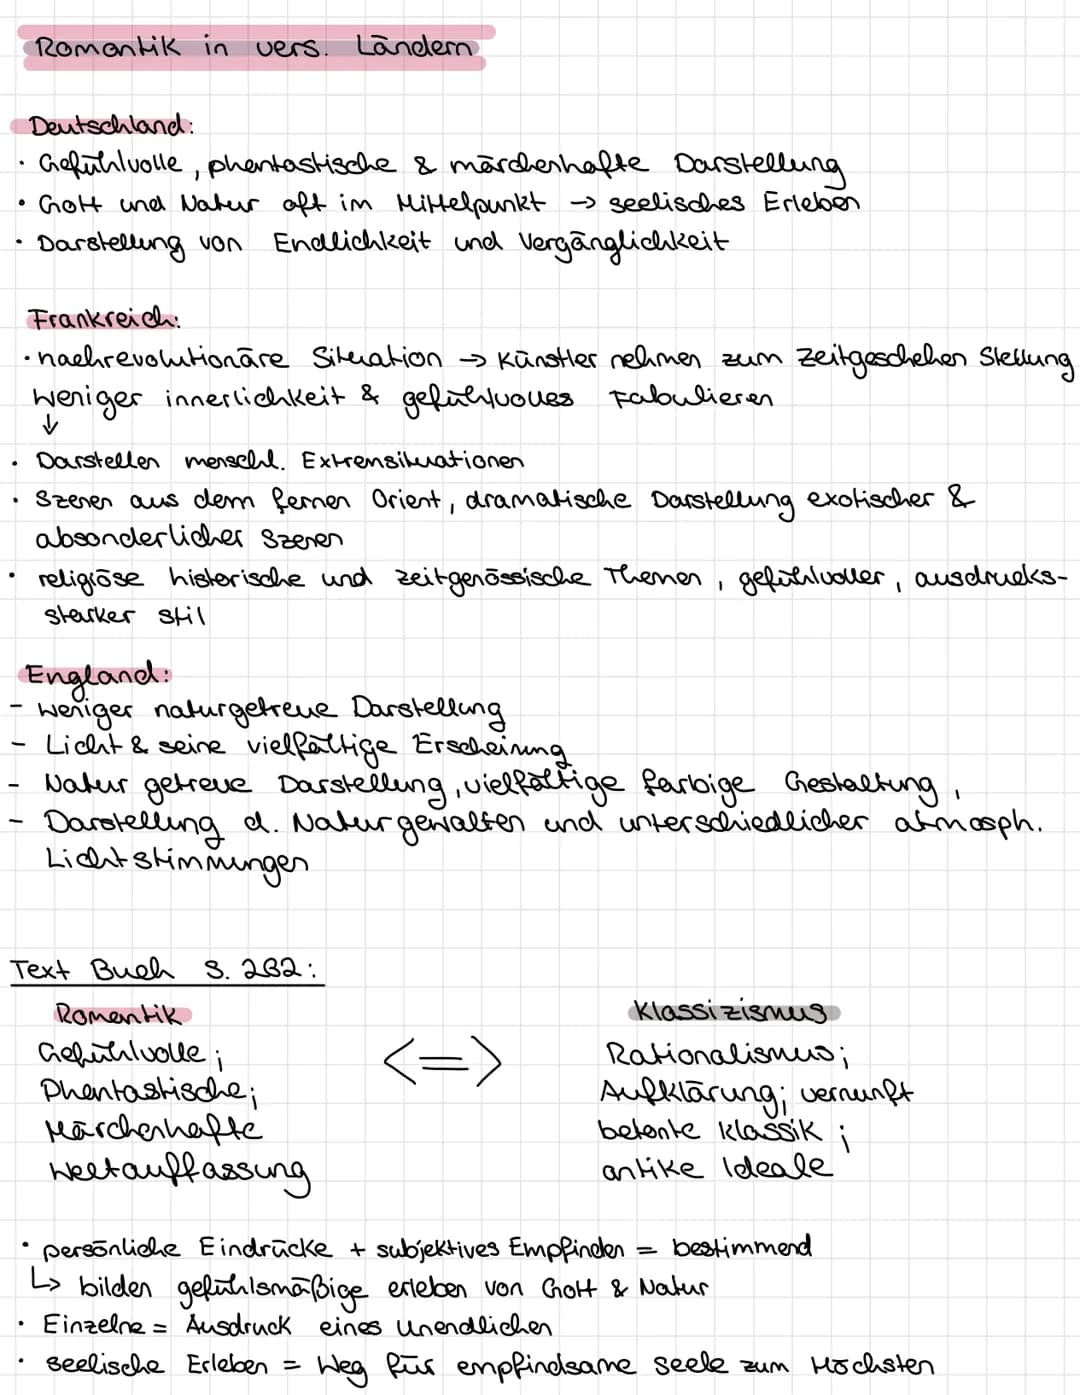 Romantik in vers. Ländern
Deutschland:
• Gefühlvolle, phantastische & märchenhafte Darstellung
• Gott und Natur oft im Mittelpunkt → seelisches Erleben
• Darstellung von Endlichkeit und Vergänglichkeit
Frankreich:
• nachrevolutionäre Situation → Künstler nehmen zum Zeitgeschehen Stellung
weniger innerlichkeit & gefühlvolles Fabulieren
↓
• Darstellen menschl. Extremsituationen
• Szenen aus dem fernen Orient, dramatische Darstellung exotischer &
absonderlicher Szenen
• religiöse historische und zeitgenössische Themen, gefühlvoller, ausdrucks-
starker stil
England:
- weniger naturgetreue Darstellung
- Licht & seine vielfältige Erscheinung
- Natur getreue Darstellung, vielfältige farbige Gestaltung,
- Darstellung d. Naturgewalten und unterschiedlicher atmosph.
Lichtstimmungen
Text Buch S. 282:
Romantik <=> Klassizismus
Gefühlvolle; Rationalismus;
Phantastische; Aufklärung; vernunft
Märchenhafte betonte Klassik;
Weltauffassung antike Ideale
• persönliche Eindrücke + subjektives Empfinden = bestimmend
↳ bilden gefühlsmäßige erleben von Gott & Natur
• Einzelne = Ausdruck eines unendlichen
• seelische Erleben = Weg für empfindsame seele zum Höchsten